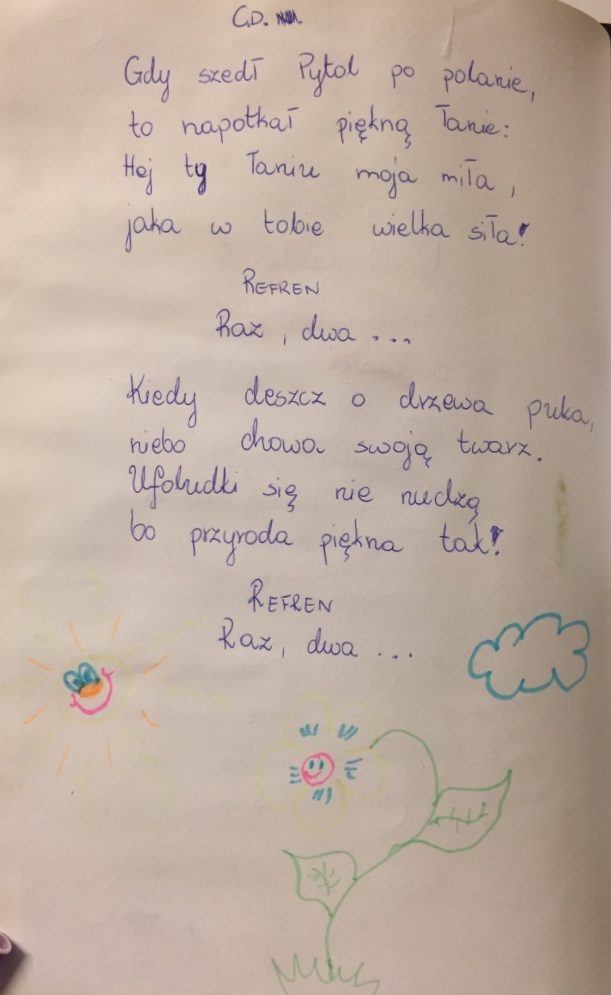 C.D.
Gdy szedł Pytol po polanie,
to napotkał piękną łanie:
Hej ty łaniu moja miła,
jaka w tobie wielka siła!
REFREN
Raz, dwa ...
Kiedy deszcz o drzewa puka,
niebo chowa swoją twarz.
Ufoludki się nie nudzą
bo przyroda piękna tak!
REFREN
Raz, dwa ...